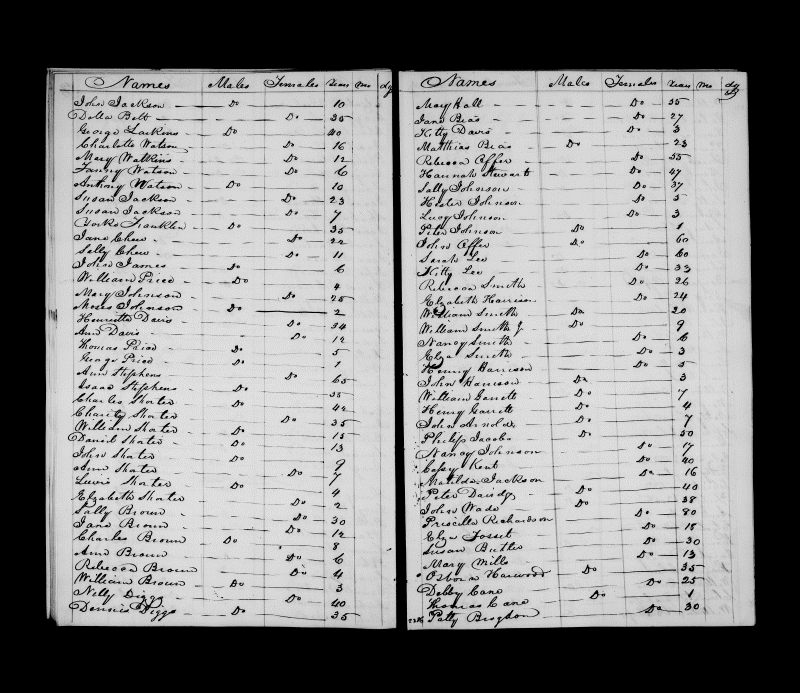 Names Males Females Years Mo dy
John Jackson — Do 10
Delia Belt — Do 35
George Larkins — Do 40
Charlotte Watson Do 16
Mary Watkins Do 12
Fanny Watson — Do 6
Anthony Watson — Do 10
Susan Jackson Do 23
Susan Jackson Do 7
Yorke Franklin — Do 35
Jane Chew — Do 22
Sally Chew — Do 11
John James — Do 6
William Price Do 4
Mary Johnson Do 25
Moses Johnson Do 2
Henrietta Davis Do 34
Ann Davis Do 12
Thomas Price Do 5
George Price Do 1
Ann Stephens Do 65
Isaac Stephens Do 35
Charles Shorter Do 42
Charity Shorter Do 35
William Shorter Do 15
Daniel Shorter — Do 13
John Shorter Do 9
Ann Shorter Do 7
Lewis Shorter Do 4
Elizabeth Shorter Do 2
Sally Brown — Do 30
Jane Brown — Do 12
Charles Brown Do 8
Ann Brown — Do 6
Rebecca Brown Do 4
William Brown — Do 3
Nelly Diggs — Do 40
Dennis Diggs Do 35
Names Males Females Years Mo dy
Mary Hall — Do 35
Jane Beas Do 27
Kitty Davis — Do 3
Matthias Beas Do 23
Rebecca Offer — Do 55
Hannah Stewart Do 47
Sally Johnson — Do 37
Hester Johnson Do 5
Lucy Johnson Do 3
Peter Johnson Do 1
John Offer Do 60
Sarah Lee Do 60
Kitty Lee Do 33
Rebecca Smith Do 26
Elizabeth Harrison Do 24
William Smith Do 20
William Smith J. Do 9
Nancy Smith Do 6
Eliza Smith — Do 3
Henny Harrison Do 5
John Harrison Do 3
William Garrett Do 7
Henry Garrett Do 4
John Arnold Do 7
Philip Jacobs Do 50
Nancy Johnson Do 17
Cassy Kent Do 40
Matilda Jackson Do 16
Peter Davidge Do 40
John Wade Do 38
Priscilla Richardson Do 80
Eliza Fosset Do 18
Susan Butler Do 30
Mary Mills Do 13
Osborn Harwood Do 35
Debby Cane Do 25
Thomas Cane Do 1
Patty Do 30